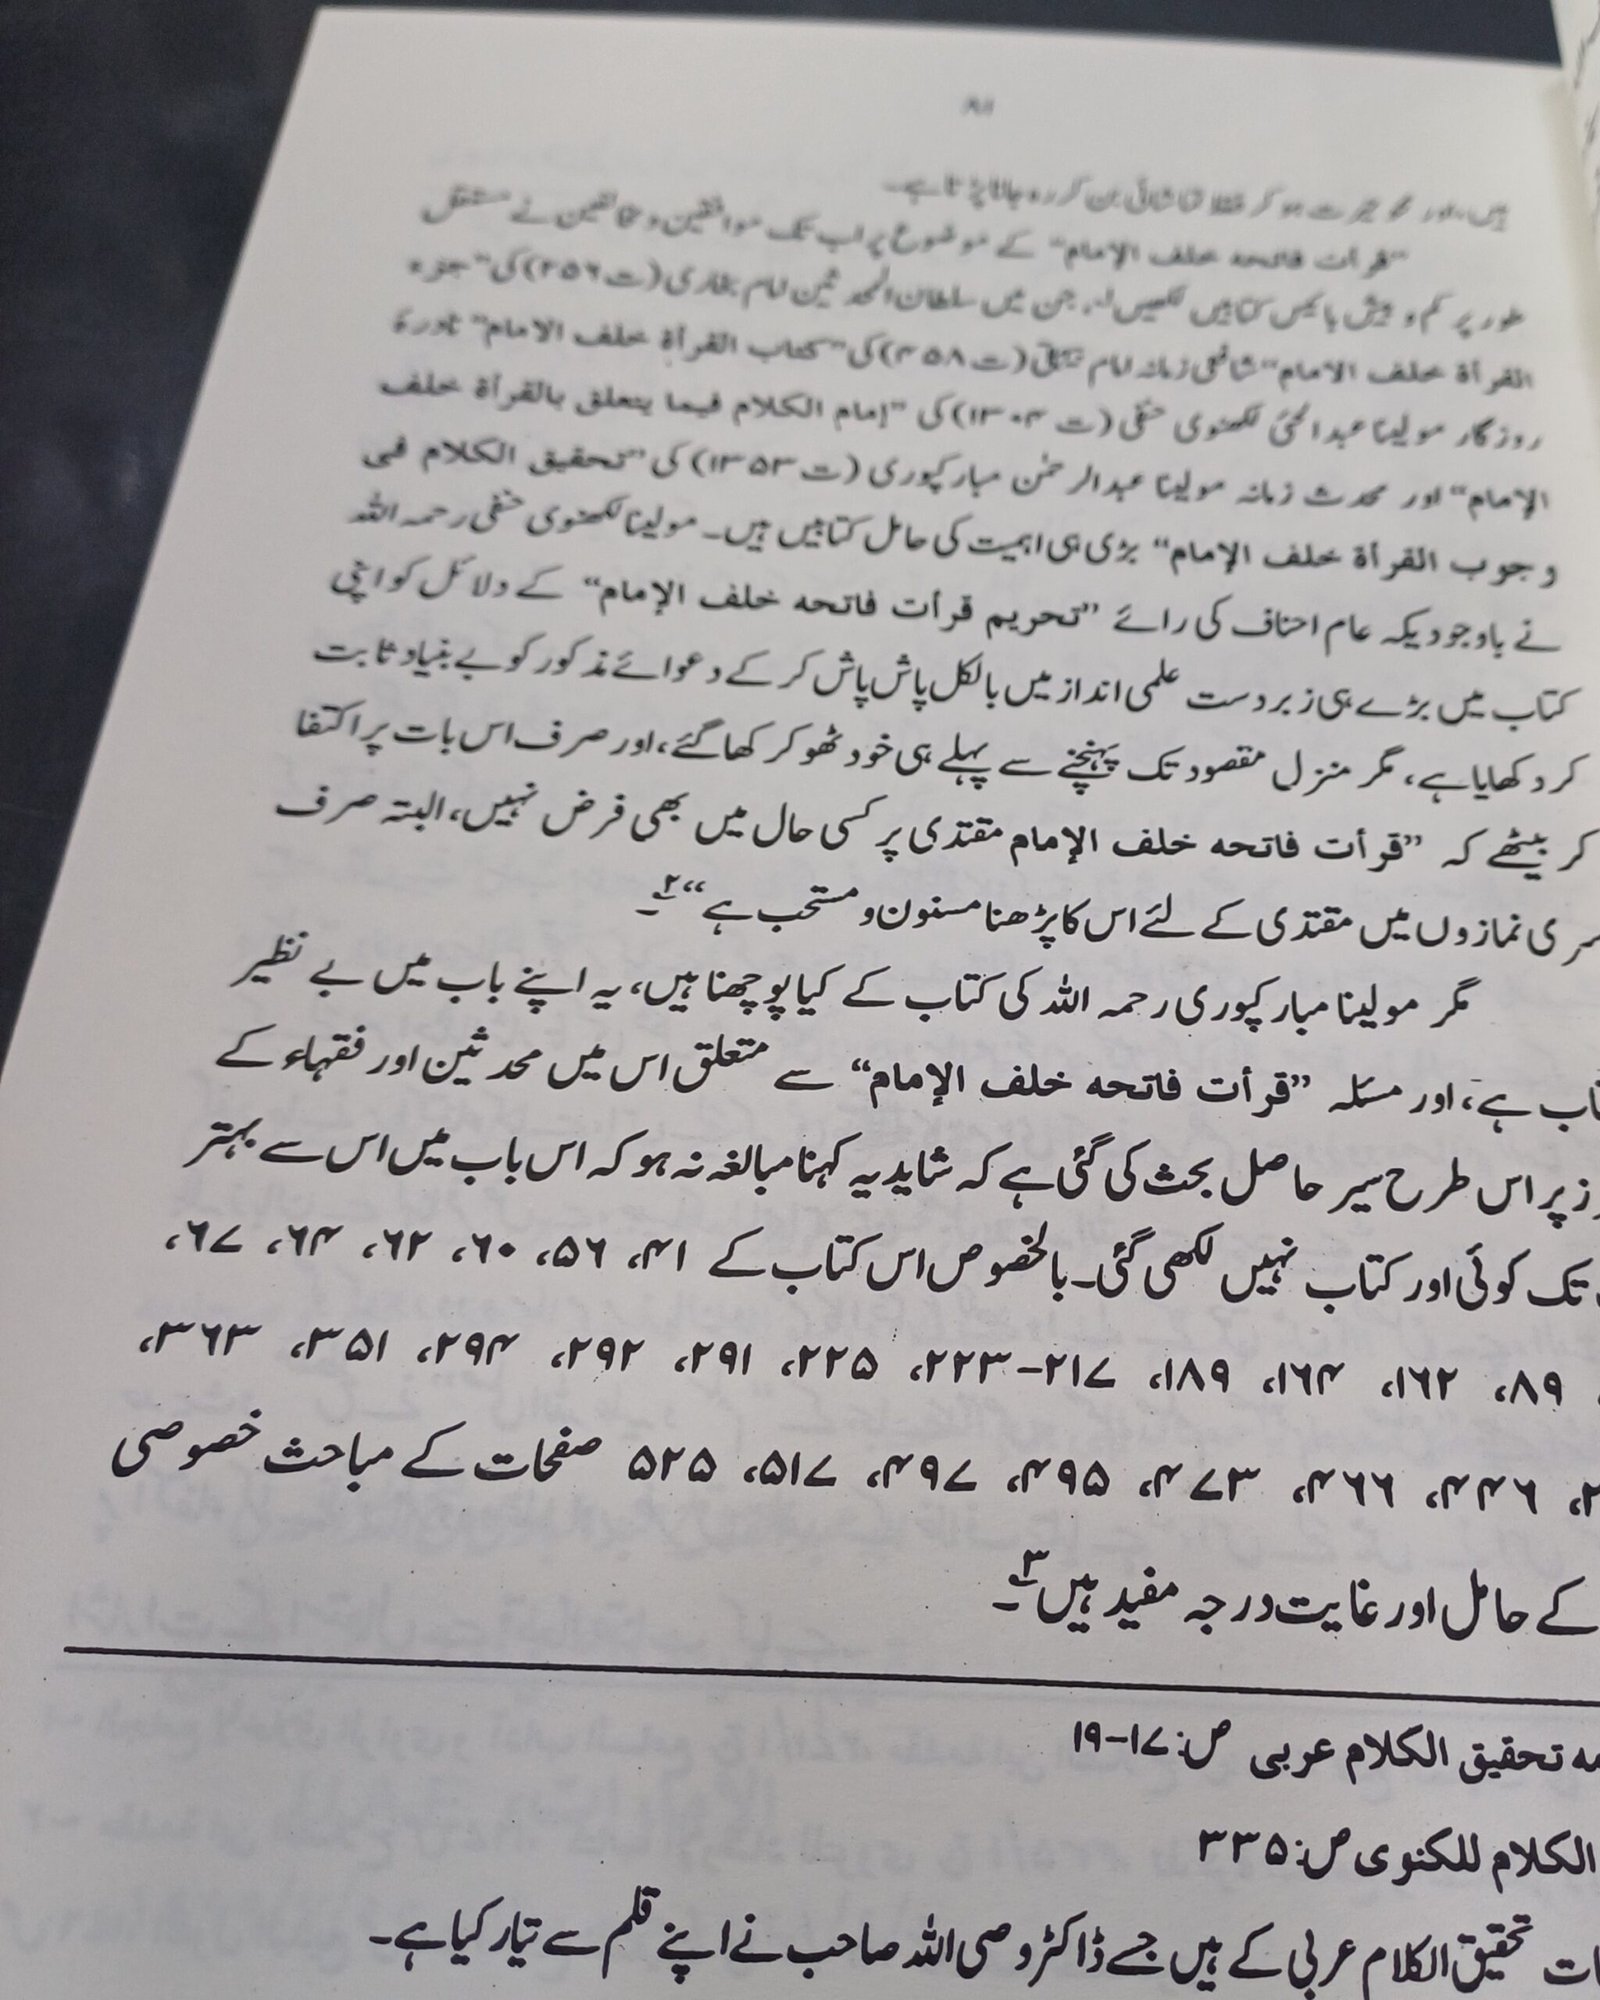 ۸۱
ہیں، اور محو حیرت ہو کر فقط تماشائی بن کر رہ جانا پڑتا ہے۔
”قرأت فاتحہ خلف الإمام“ کے موضوع پر اب تک موافقین و مخالفین نے مستقل
طور پر کم و بیش بائیس کتابیں لکھیں، جن میں سلطان المحدثین امام بخاری (ت ۲۵۶) کی ”جزء
القرأة خلف الامام“ شافعی زمانہ امام بیہقی (ت ۴۵۸) کی ”کتاب القرأة خلف الامام“ نادرۂ
روزگار مولینا عبدالحئی لکھنوی حنفی (ت ۱۳۰۴) کی ”إمام الکلام فیما یتعلق بالقرأة خلف
الإمام“ اور محدث زمانہ مولینا عبدالرحمٰن مبارکپوری (ت ۱۳۵۳) کی ”تحقیق الکلام فی
وجوب القرأة خلف الإمام“ بڑی ہی اہمیت کی حامل کتابیں ہیں۔ مولینا لکھنوی حنفی رحمہ اللہ
نے باوجودیکہ عام احناف کی رائے ”تحریم قرأت فاتحہ خلف الإمام“ کے دلائل کو اپنی
کتاب میں بڑے ہی زبردست علمی انداز میں بالکل پاش پاش کر کے دعوائے مذکور کو بے بنیاد ثابت
کر دکھایا ہے، مگر منزل مقصود تک پہنچنے سے پہلے ہی خود ٹھوکر کھا گئے، اور صرف اس بات پر اکتفا
کر بیٹھے کہ ”قرأت فاتحہ خلف الإمام مقتدی پر کسی حال میں بھی فرض نہیں، البتہ صرف
سری نمازوں میں مقتدی کے لئے اس کا پڑھنا مسنون و مستحب ہے“ ۲۔
مگر مولینا مبارکپوری رحمہ اللہ کی کتاب کے کیا پوچھنا ہیں، یہ اپنے باب میں بے نظیر
ہے، اور مسئلہ ”قرأت فاتحہ خلف الإمام“ سے متعلق اس میں محدثین اور فقہاء کے
پر اس طرح سیر حاصل بحث کی گئی ہے کہ شاید یہ کہنا مبالغہ نہ ہو کہ اس باب میں اس سے بہتر
تک کوئی اور کتاب نہیں لکھی گئی۔ بالخصوص اس کتاب کے ۴۱، ۵۶، ۶۰، ۶۲، ۶۴، ۶۷،
۸۹، ۱۶۲، ۱۶۴، ۱۸۹، ۲۱۷-۲۲۳، ۲۲۵، ۲۹۱، ۲۹۲، ۲۹۴، ۳۵۱، ۳۶۳،
۴۴۶، ۴۶۶، ۴۷۳، ۴۹۵، ۴۹۷، ۵۱۷، ۵۲۵ صفحات کے مباحث خصوصی
کے حامل اور غایت درجہ مفید ہیں ۳۔
تحقیق الکلام عربی ص: ۱۷-۱۹
الکلام للکنوی ص: ۳۳۵
تحقیق الکلام عربی کے ہیں جسے ڈاکٹر وصی اللہ صاحب نے اپنے قلم سے تیار کیا ہے۔